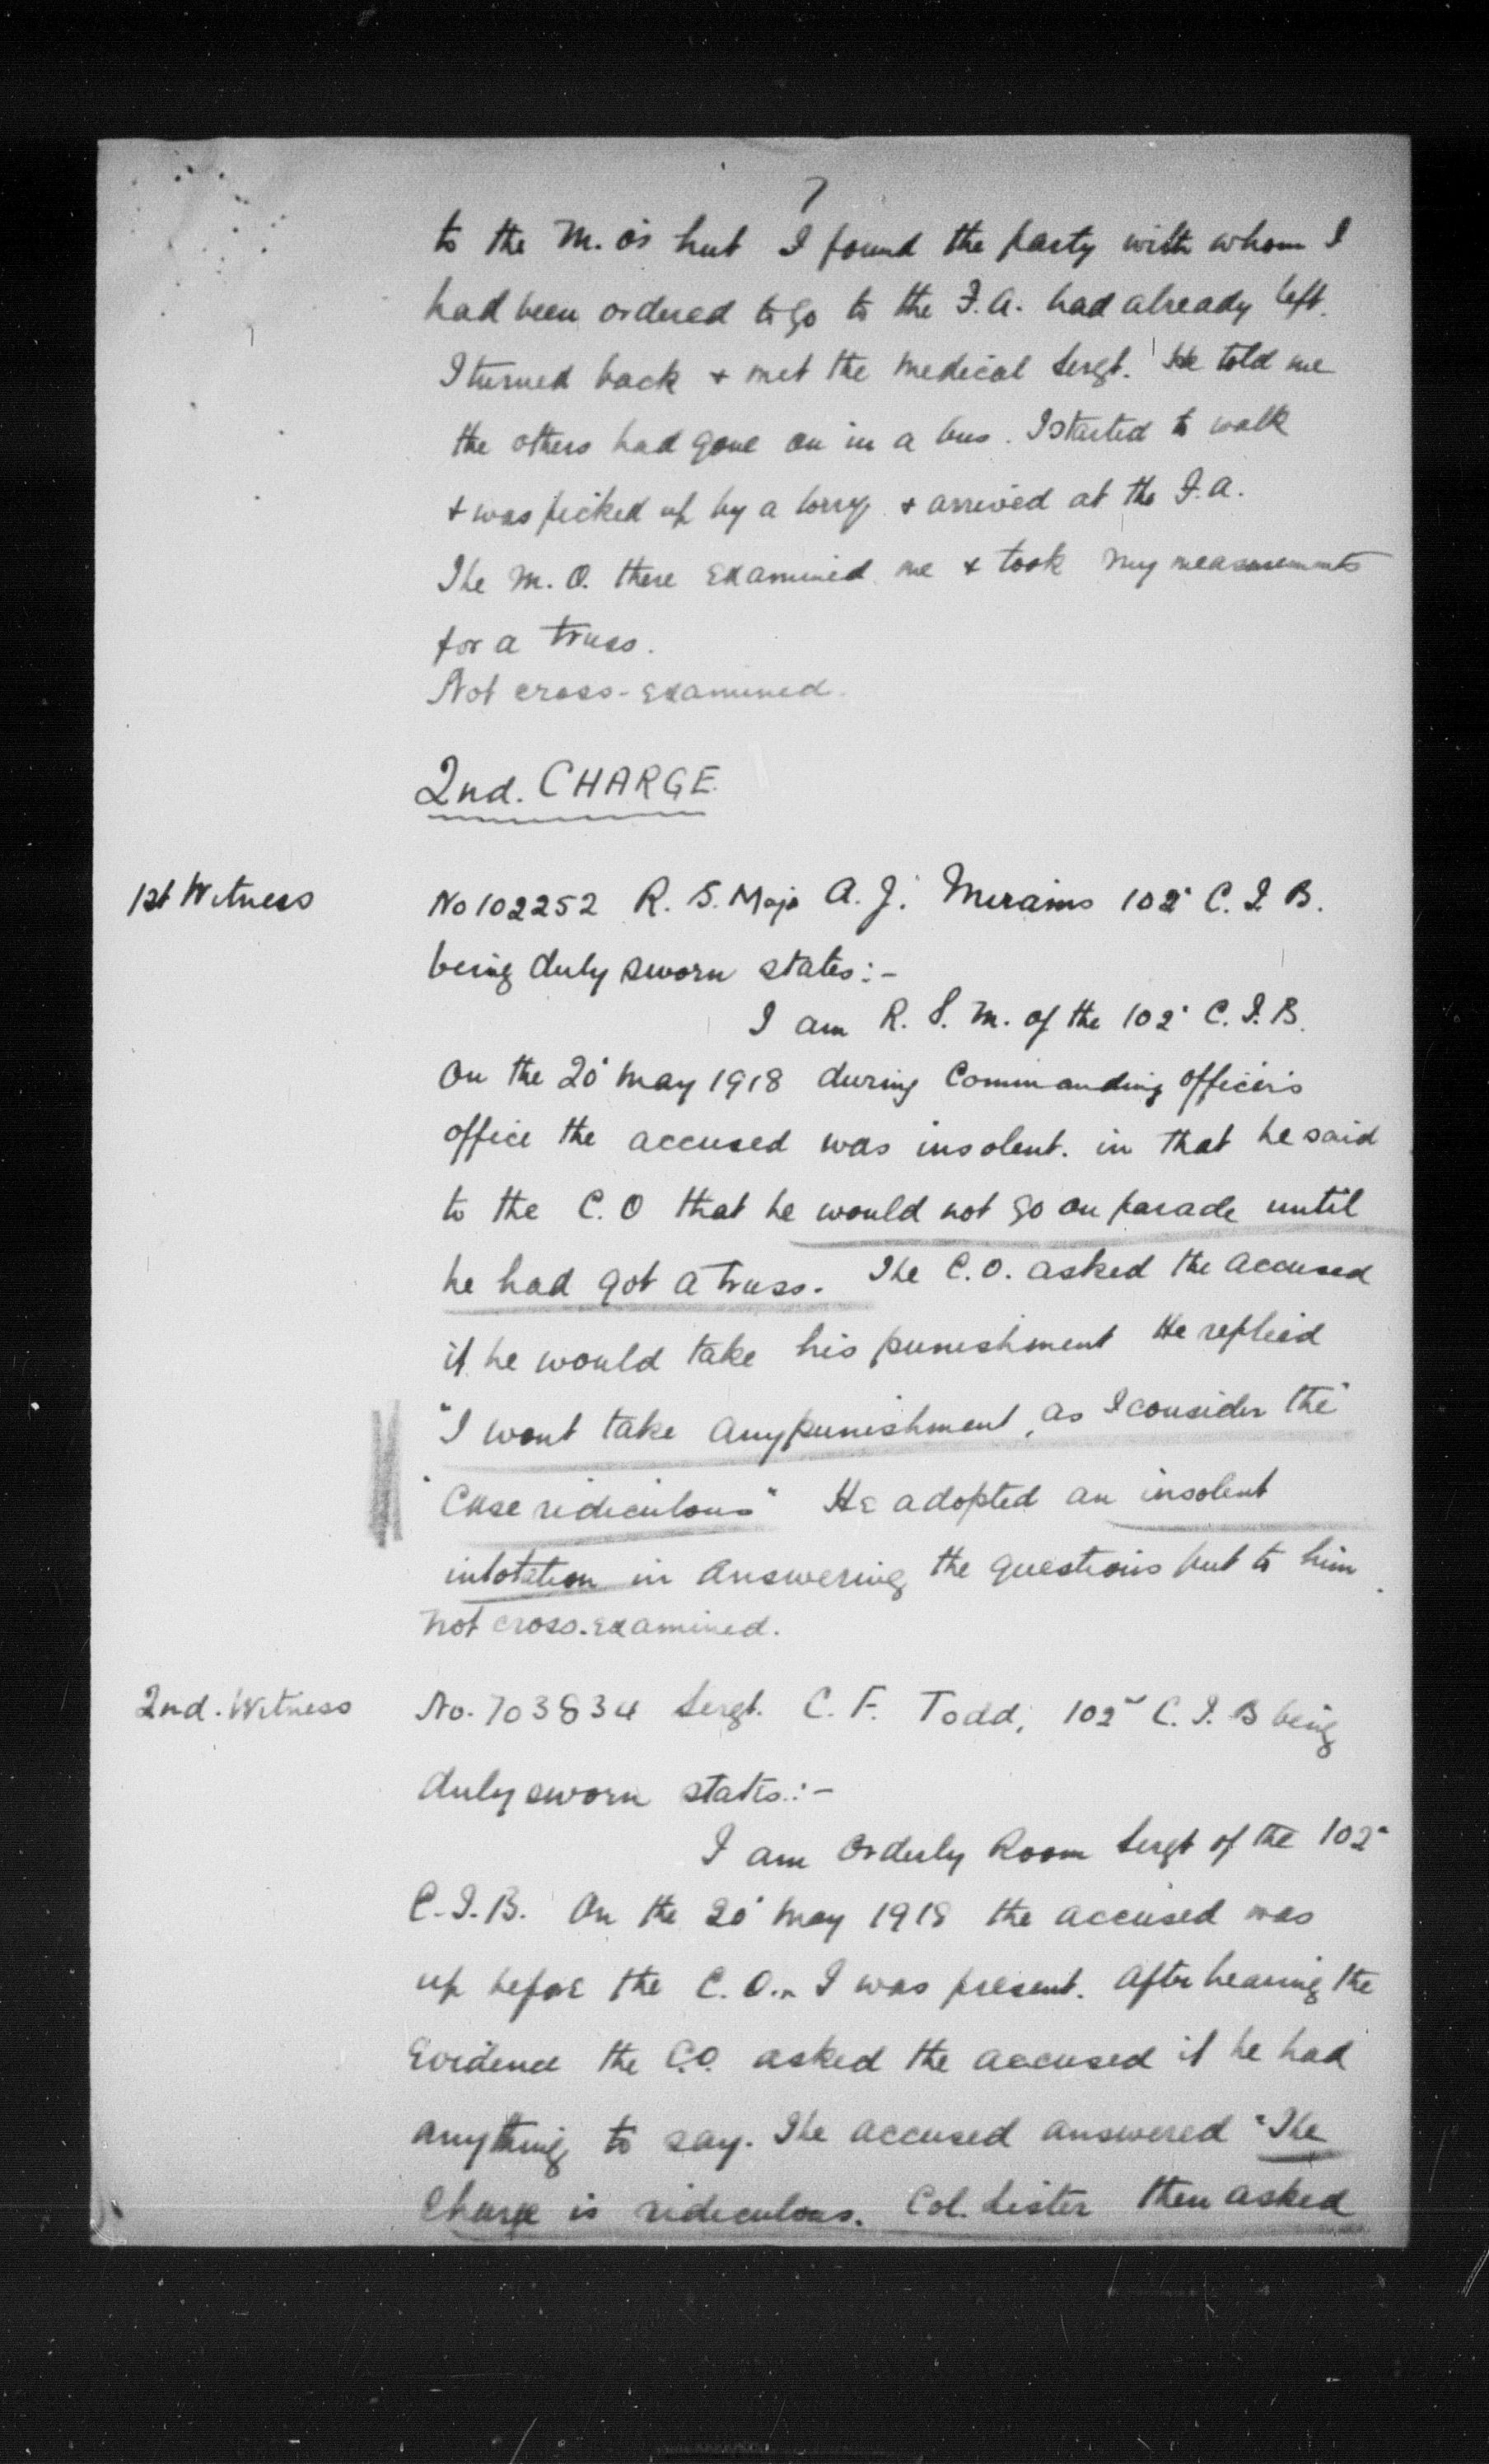 7
to the M. O's hut I found the party with whom I
had been ordered to go to the F.A. had already left.
I turned back + met the medical Sergt. He told me
the others had gone on in a bus. I started to walk
+ was picked up by a lorry + arrived at the F.A.
The M.O. there examined me + took my measurements
for a truss.
Not cross-examined.
2nd. CHARGE.
1st Witness
No 102252 R. S. Majo A. J. 102 C. I. B.
being duly sworn states:-
I am R. S. M. of the 102 C. I. B.
On the 20 May 1918 during Commanding officers
office the accused was insolent. in that he said
to the C.O that he would not go on parade until
he had got a truss. The C.O. asked the accused
if he would take his punishment He replied
"I wont take any punishment, as I consider the"
"Case ridiculous" He adopted an insolent
intotation in answering the questions put to him.
Not cross.examined.
2nd. Witness
No. 703834 Sergt. C. F. Todd, 102 C. I. B being
duly sworn states.:-
I am Orderly Room Sergt of the 102
C.I.B. On the 20 May 1918 the accused was
up before the C.O.. I was present. After hearing the
Evidence the C.O. asked the accused if he had
anything to say. The accused answered "The
Charge is ridiculous. Col. Lister then asked